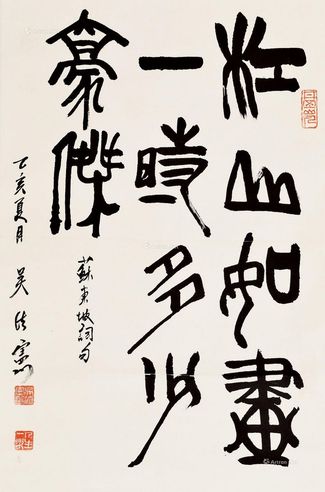 江山如畫
一時多少
豪傑
蘇東坡詞句
乙亥夏月 吴法憲